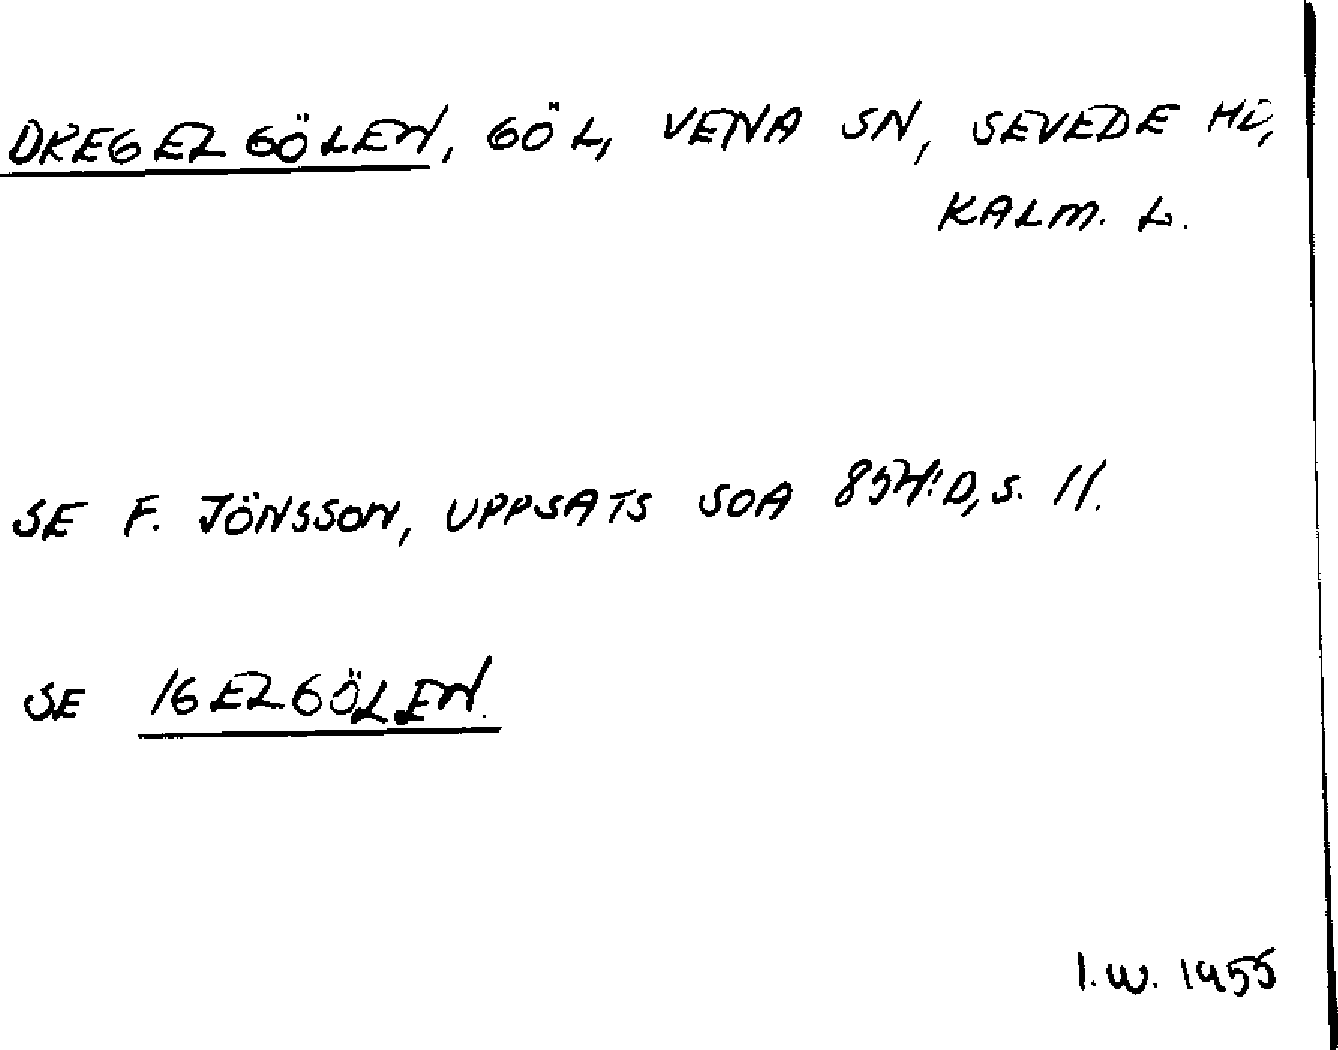 DREGELGÖLEN, GÖL, VENA SN, SEVEDE HD,
KALM. L.
SE F. JÖNSSON, UPPSATS SOA 854:D, S. 11.
SE IGELGÖLEN.
I.W. 1955